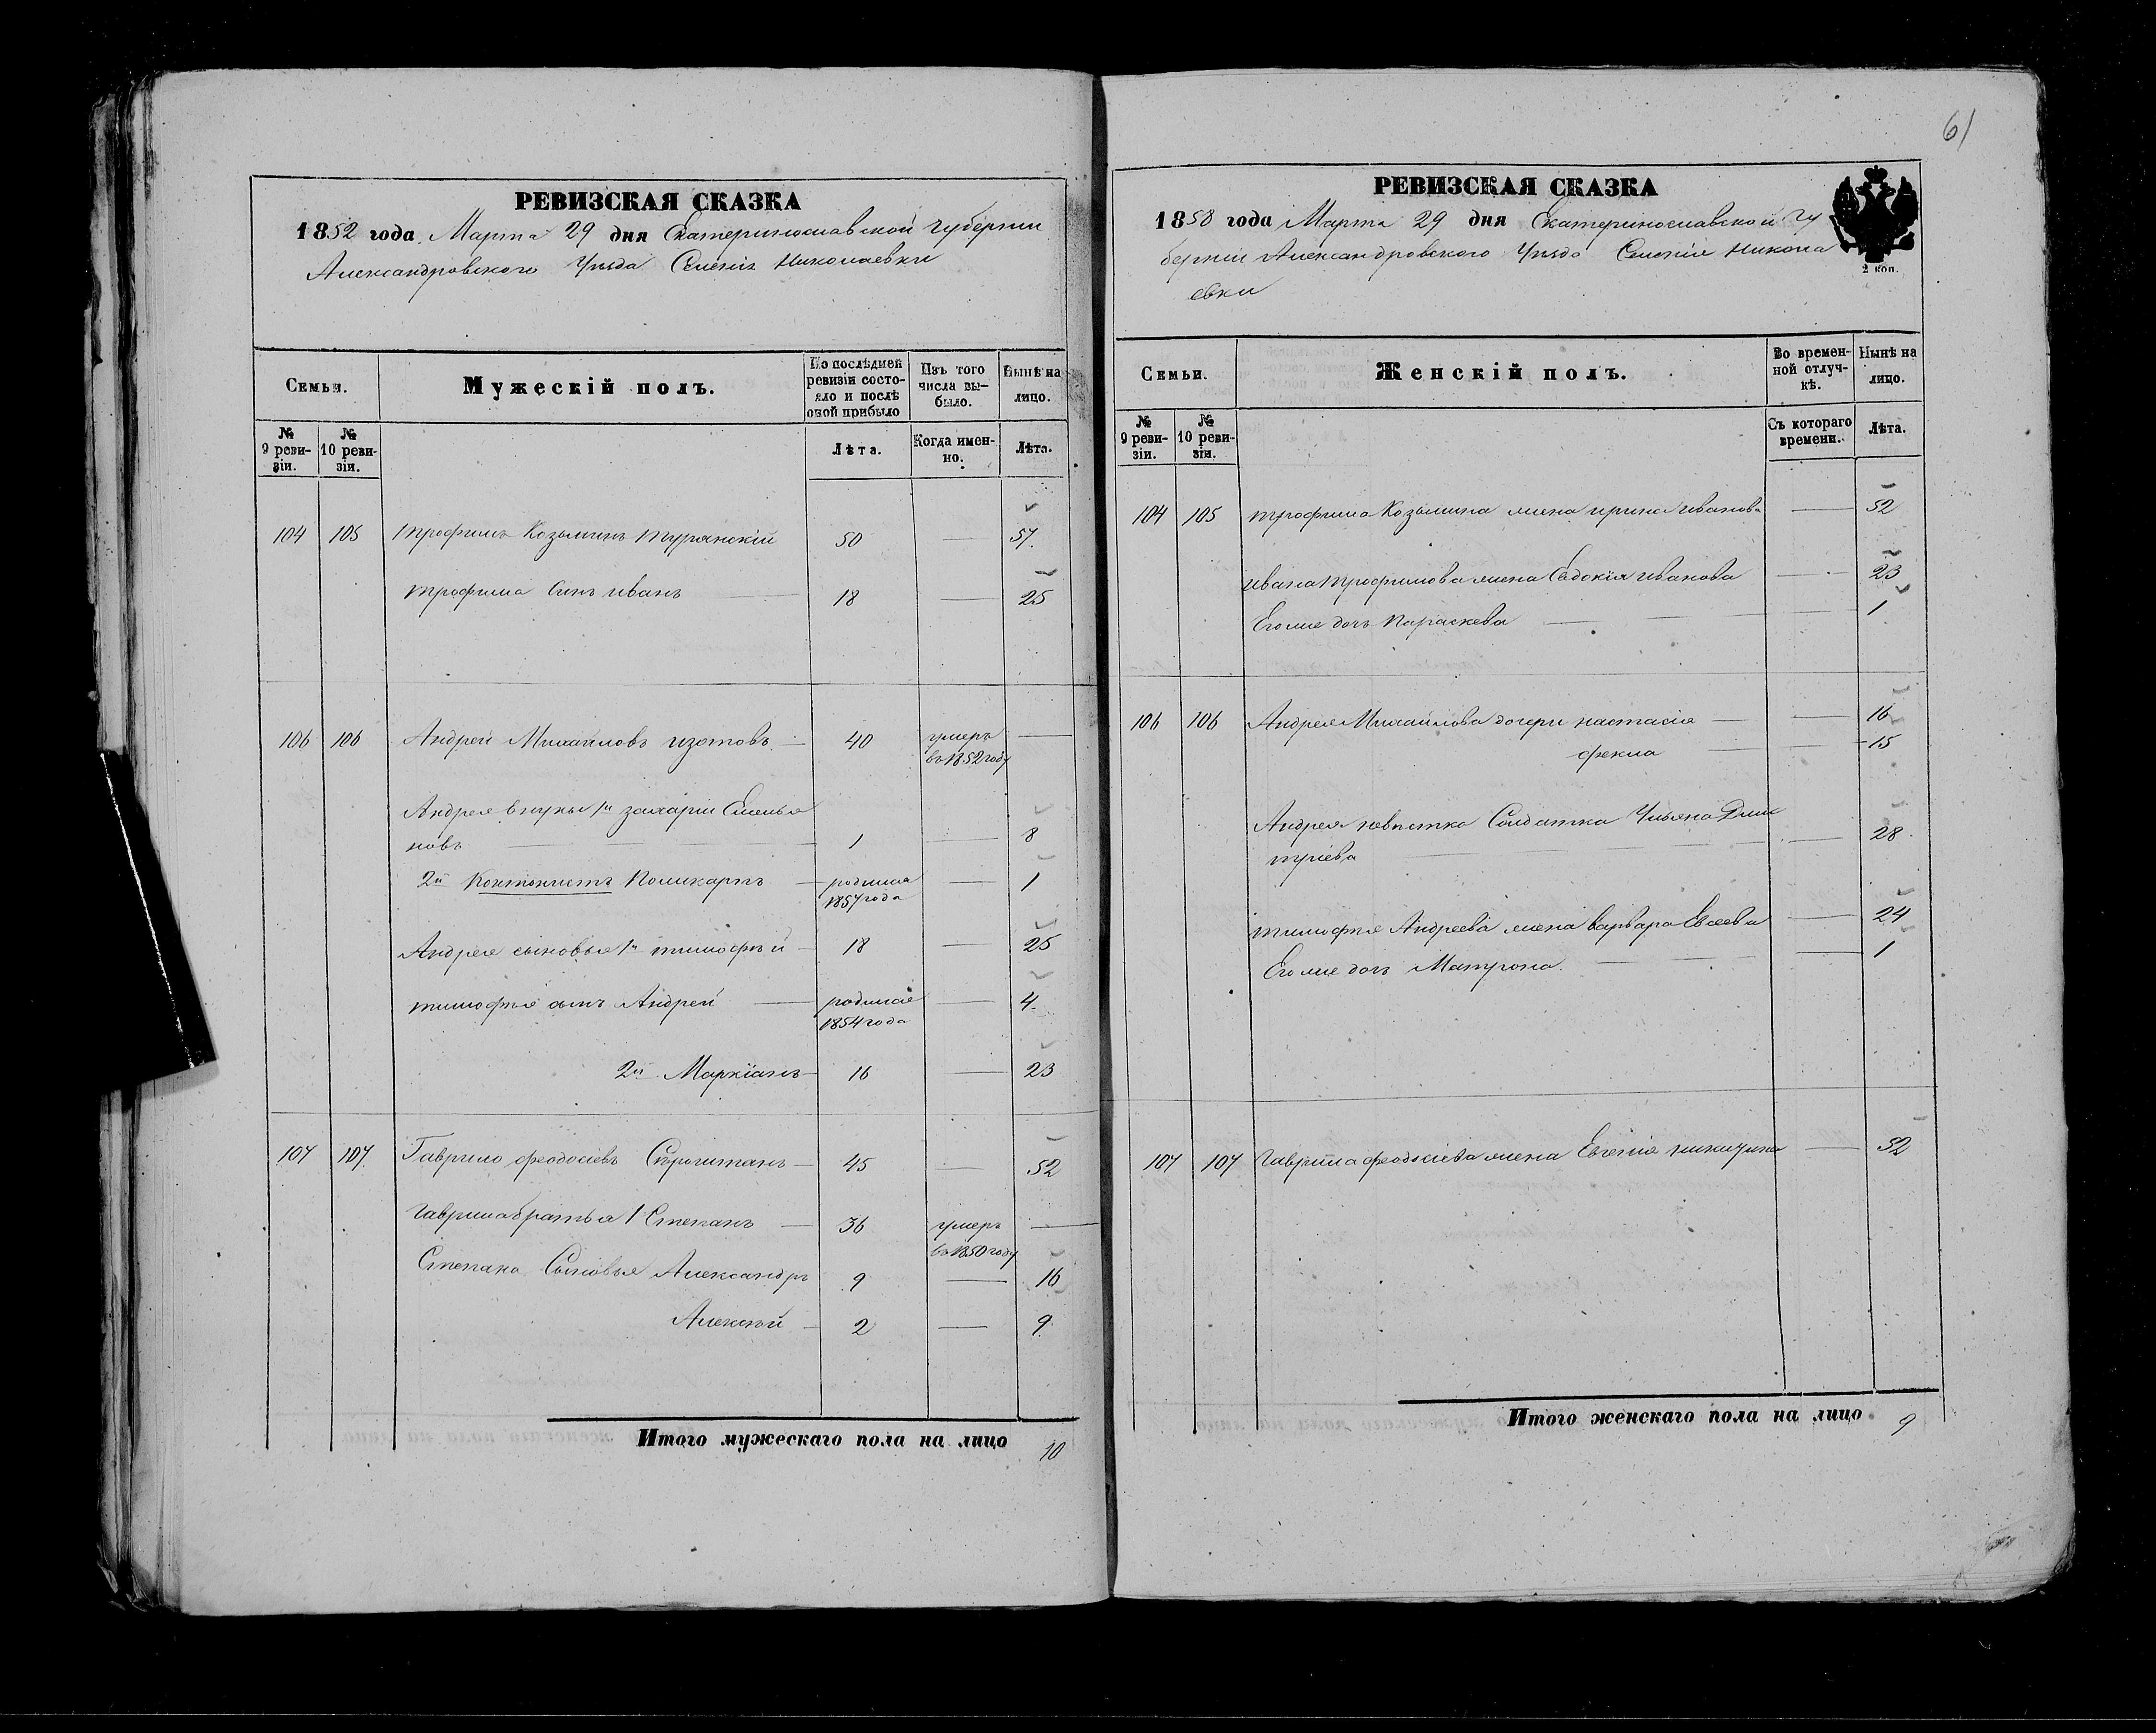 61
РЕВИЗСКАЯ СКАЗКА
1852 года Марта 29 дня Екатеринославской губернии
Александровского Уѣзда Селенія Николаевки
Семьи.
Мужескій полъ.
По послѣдней ревизіи состояло и послѣ оной прибыло
Изъ того числа выбыло.
Нынѣ на лицо.
№ 9 ревизіи.
№ 10 ревизіи.
Лѣта.
Когда именно.
Лѣта.
104 105 трофимъ Козьминъ турянскій 50 — 57.
трофима Синъ иванъ — 18 — 25
106 106 Андрей Михайловъ изотовъ — 40 умеръ въ 1852 году —
Андрея внуки 1й захарій Емелья
новъ — 1 — 8
2й Контонистъ Поликарпъ — родился 1857 года — 1
Андрея сыновья 1й тимофѣй — 18 — 25
тимофѣя сынъ Андрей — родился 1854 года — 4
2й Маркіанъ — 16 — 23
107 107 Гаврило феодосіевъ — 45 — 52
гаврила братья 1 Степанъ — 36 умеръ въ 1850 году —
Степана Сыновья Александръ 9 — 16
Алексѣй — 2 — 9
Итого мужескаго пола на лицо 10
РЕВИЗСКАЯ СКАЗКА
1858 года Марта 29 дня Екатеринославской гу
берніи Александровского Уѣзда Селенія Никола
евки
2 коп.
Семьи.
Женскій полъ.
Во временной отлучкѣ.
Нынѣ на лицо.
№ 9 ревизіи.
№ 10 ревизіи.
Съ котораго времени.
Лѣта.
104 105 трофима Козьмина жена ирина иванова — 52
ивана трофимова жена Евдокія иванова — 23
Его же дочь Параскева — 1
106 106 Андрея Михайлова дочери настасія — 16
фекла — 15
Андрея невѣстка Солдатка Ульяна Дми
тріева — 28
тимофѣя Андреева жена варвара Евсеева — 24
Его же дочь Матрона. — 1
107 107 гаврила феодосіева жена Евгенія никитина — 52
Итого женскаго пола на лицо 9